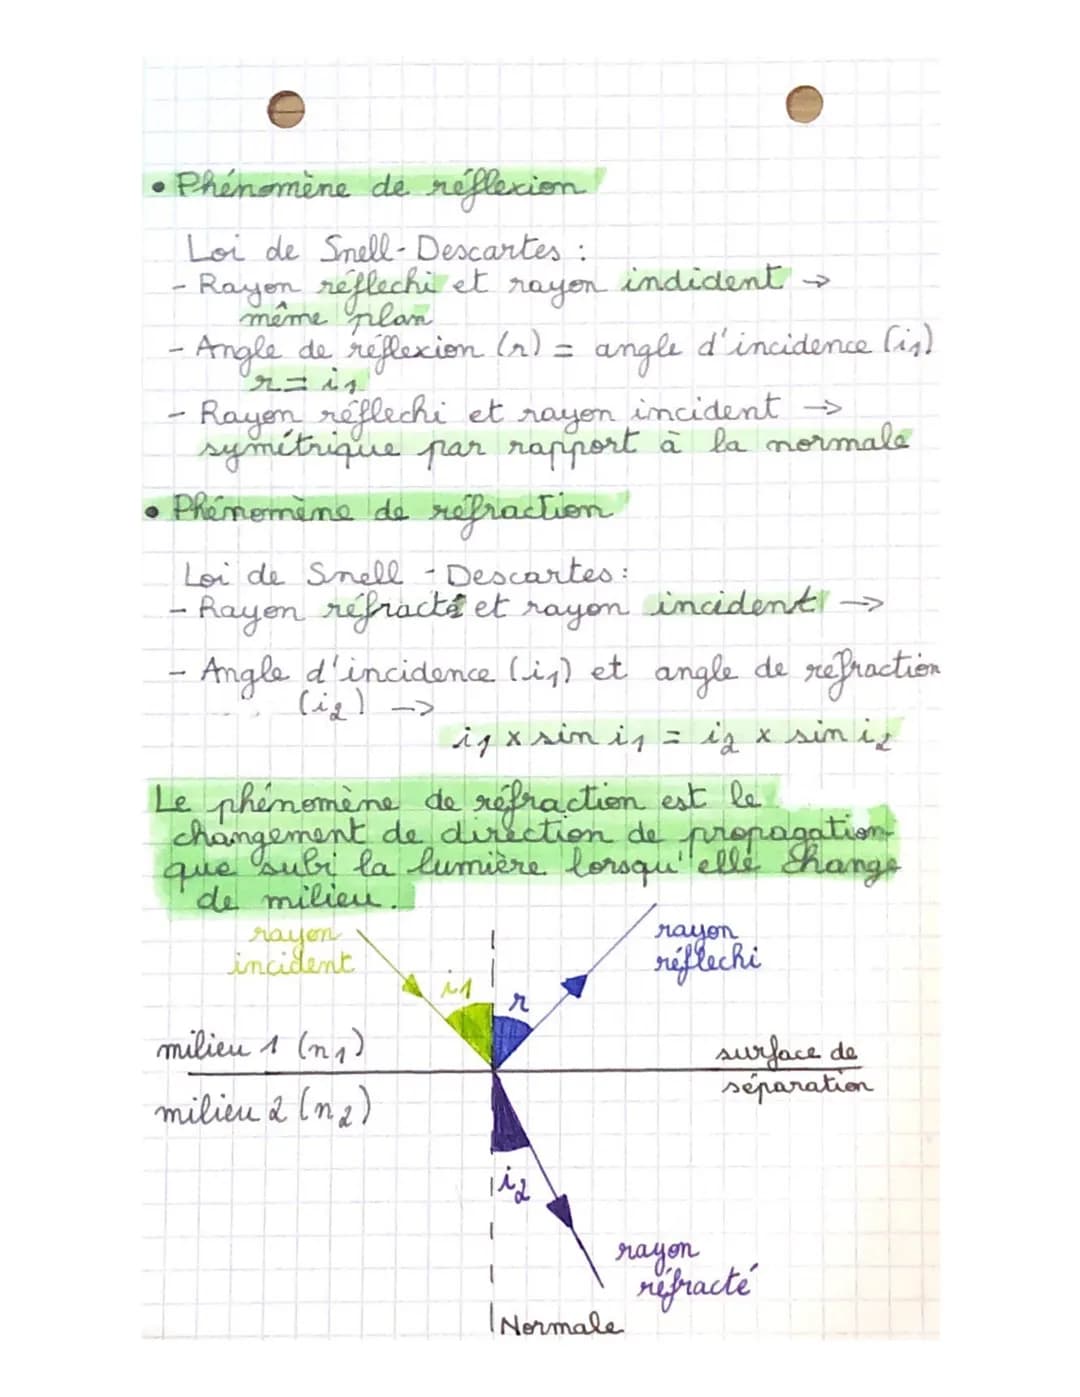 • Phénomène de réflexion
Loi de Snell-Descartes :
- Rayon réflechi et rayon indident →
même plan
- Angle de réflexion (r) = angle d'incidence (i1)
r = i1
- Rayon réflechi et rayon incident →
symétrique par rapport à la normale
• Phénomène de réfraction
Loi de Snell - Descartes :
- Rayon réfracté et rayon incident →
- Angle d'incidence (i1) et angle de réfraction
(i2) →
i1 x sin i1 = i2 x sin i2
Le phénomène de réfraction est le
changement de direction de propagation
que subi la lumière lorsqu'elle change
de milieu.
rayon
incident
rayon
réflechi
i1
r
milieu 1 (n1)
surface de
séparation
milieu 2 (n2)
i2
rayon
réfracté
Normale